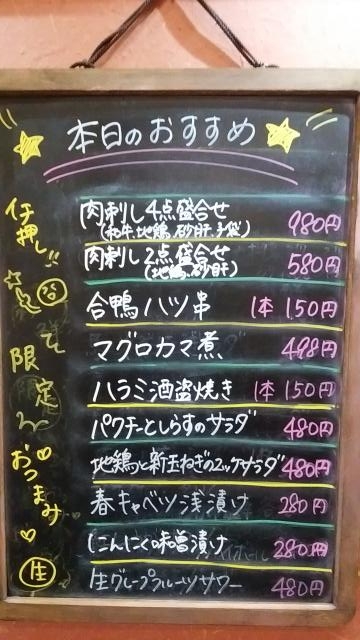 本日のおすすめ
イチ押し!!
肉刺し4点盛合せ 980円
(和牛、地鶏、砂肝、子袋)
肉刺し2点盛合せ 580円
(地鶏、砂肝)
合鴨ハツ串 1本 150円
マグロカマ煮 498円
限定
ハラミ酒盗焼き 1本 150円
パクチーとしらすのサラダ 480円
おつまみ
地鶏と新玉ねぎのユッケサラダ 480円
春キャベツ浅漬け 280円
にんにく味噌漬け 280円
生
生グレープフルーツサワー 480円